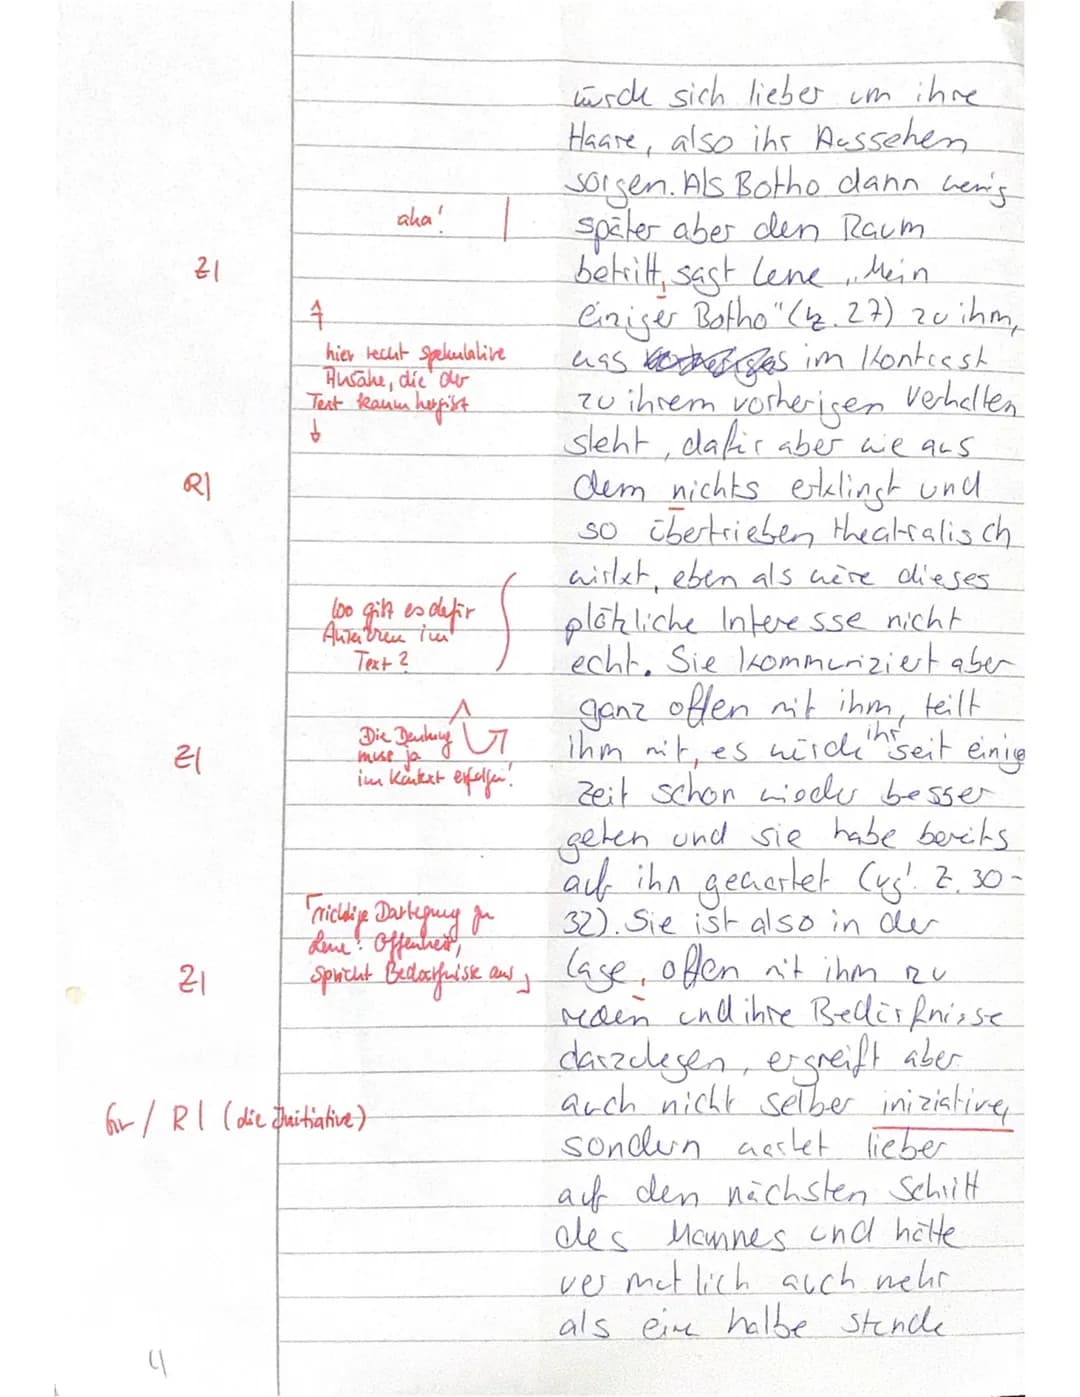 würde sich lieber um ihre
Haare, also ihr Aussehen
sorgen. Als Botho dann wenig
aha!
später aber den Raum
Z|
betritt, sagt Lene „Mein
einziger Botho" (Z. 27) zu ihm,
hier recht spekulative
Ansätze, die der
Text kaum hergibt
was im Kontrast
zu ihrem vorherigen Verhalten
steht, dafür aber wie aus
R|
dem nichts erklingt und
so übertrieben theatralisch
wirkt, eben als wäre dieses
Wo gibt es dafür
im
Text?
plötzliche Interesse nicht
echt. Sie kommuniziert aber
ganz offen mit ihm, teilt
Die Deutung
muss ja
im Kontext erfolgen!
Z|
ihm mit, es würde ihr seit einige
zeit schon wieder besser
gehen und sie habe bereits
auf ihn gewartet (vgl. Z. 30-
richtige Darlegung zu
Lene: Offenheit,
spricht Bedürfnisse aus
32). Sie ist also in der
Z|
Lage, offen mit ihm zu
reden und ihre Bedürfnisse
darzulegen, ergreift aber
Gr / R| (die Initiative)
auch nicht selber iniziative,
sondern wartet lieber
auf den nächsten Schritt
des Mannes und hätte
vermutlich auch mehr
als eine halbe Stunde
4